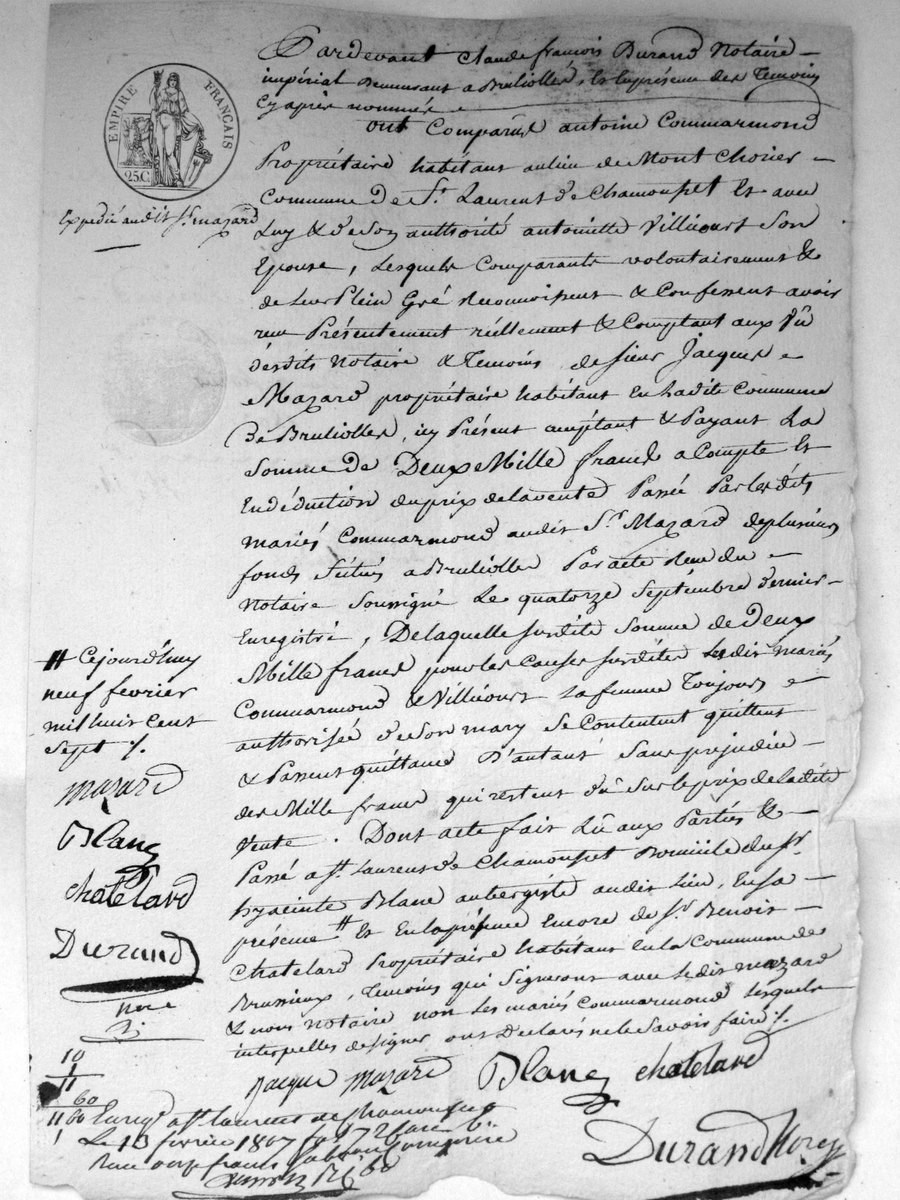 Pardevant Claude françois Durand Notaire
impérial Demeurant a Brulliolles, & En présence des Temoins
Cy après nommés
ont Comparus antoine Commarmond
Propriétaire habitant au lieu de Mont Chorier
Commune de St. Laurent de Chamousset Et avec
Luy & de Son authorité antoinette Villecourt Son
Epouse, Lesquels Comparants volontairement &
de Leur Plein Gré Reconnoissent & Confessent avoir
reçu Présentement réellement & Comptant aux Vû
desdits Notaire & Temoins de sieur Jacques
Mazard propriétaire habitant En Ladite Commune
de Brulliolles, icy Présent acceptant & Payant La
Somme de Deux Mille francs a Compte Et
En déduction du prix de la vente Passée Par les dits
mariés Commarmond audit Sr. Mazard de plusieurs
fonds Situés a Brulliolles Par acte Reçu du
Notaire Soussigné Le quatorze Septembre dernier
Enregistré, De laquelle Susdite Somme de Deux
Mille francs pour les Causes Susdites Lesdits mariés
Commarmond & Villecourt La femme Toujours
authorisée de Son mary Se Contentent quittent
& Passent quittance D'autant Sans prejudice
des Mille francs qui restent dû Sur le prix de la dite
Vente. Dont acte fait Lû aux Parties &
Passé a St. Laurent de Chamousset Domicile du Sr.
hyacinte Blanc aubergiste audit Lieu, En sa
présence # Et En la présence Encore de Sr. Benoit
Chatelard Propriétaire habitant En la Commune de
Brussieux, Temoins qui Signeront avec Ledit mazard
& nous Notaire non Les mariés Commarmond Lesquels
interpellés de signer ont Déclarés ne le Savoir faire /.
Jacque Mazard Blanc Chatelard
Durand Nore
EMPIRE FRANÇAIS
25 C.
Expedié audit Sr. mazard
# Cejourd'huy
neuf fevrier
mil huit cent
Sept /.
mazard
Blanc
chatelard
Durand
nore
10
1
11
60
11 60
1
Enregé a St Laurent de chamousset
Le 13 fevrier 1807
Reçu onze francs